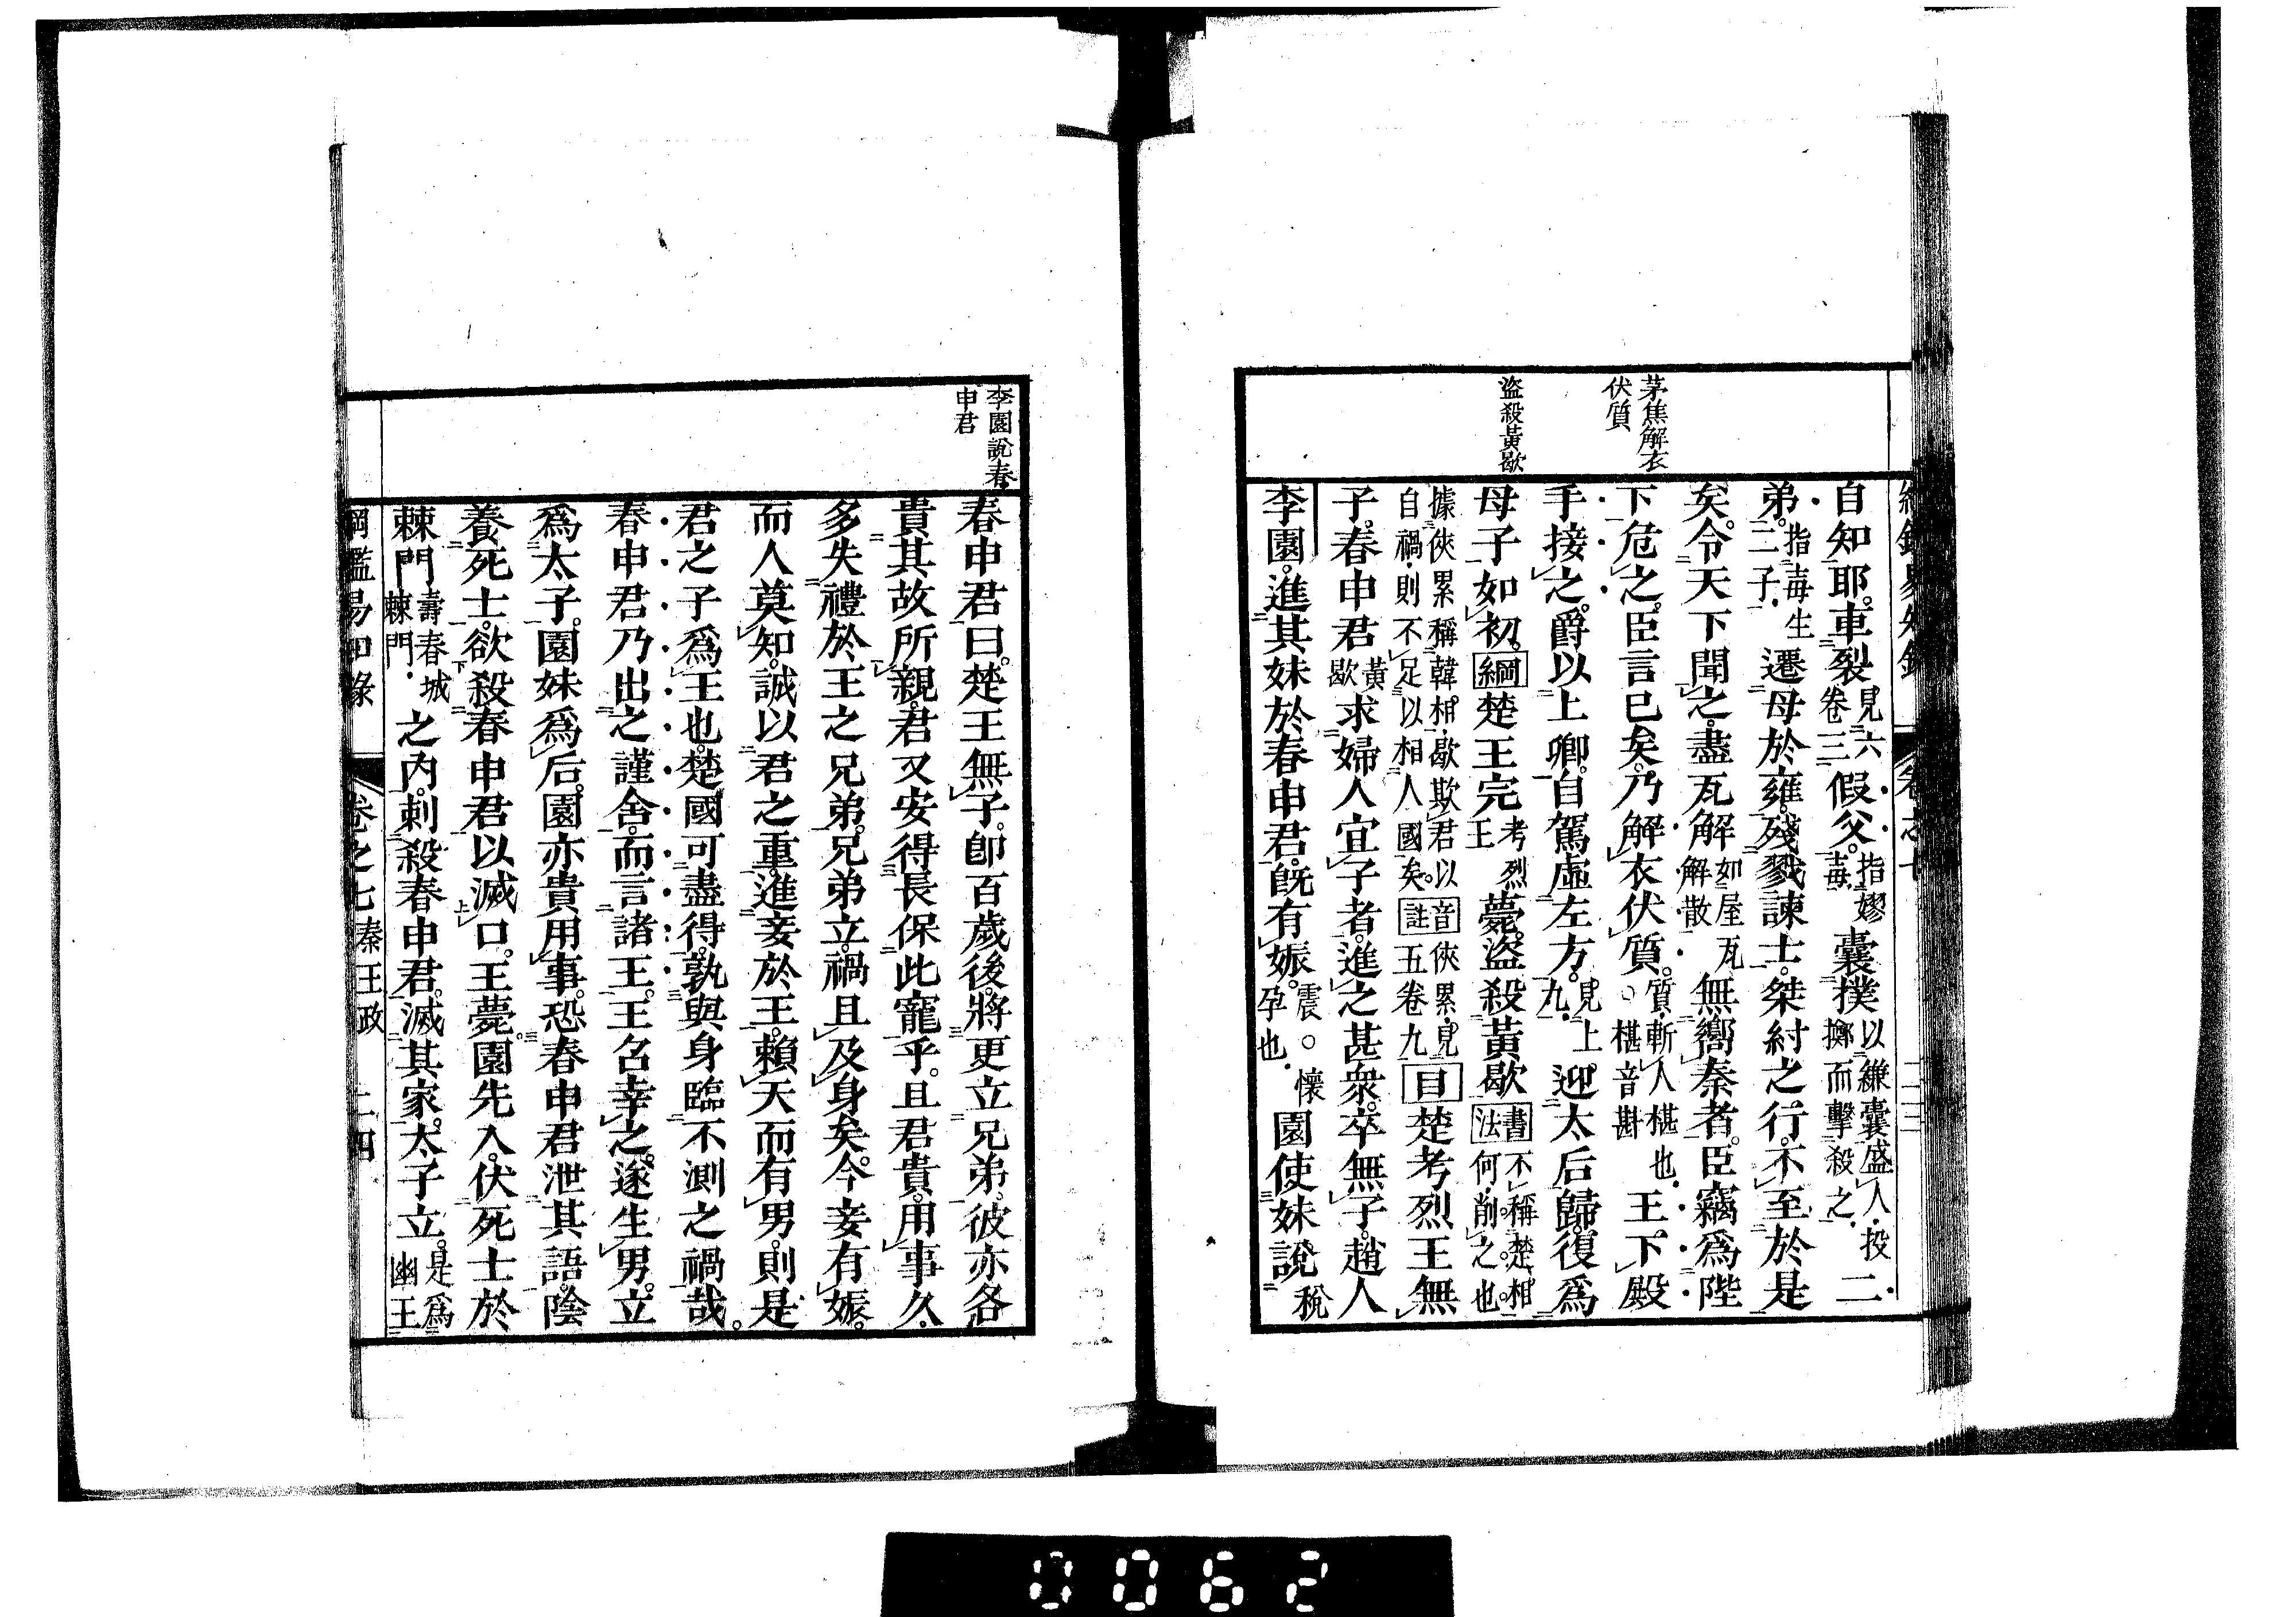 茅焦解衣
伏質
盜殺黃歇
自知耶。車裂見六卷三假父。指嫪毐囊撲以縑囊盛人、投擲而擊殺之、二
弟。指毐生二子、遷母於雍。殘戮諫士。桀紂之行。不至於是
矣。令天下聞之。盡瓦解如屋瓦解散、無嚮秦者。臣竊爲陛
下危之。臣言已矣。乃解衣伏質。質、斬人椹也、○椹音斟王下殿
手接之。爵以上卿。自駕虛左方。見上九、迎太后歸。復爲
母子如初。綱楚王完考烈王薨。盜殺黃歇書法不稱楚相、何、削之也。
據俠累稱韓相、歇欺君以自禍、則不足以相人國矣。音註俠累、見五卷九目楚考烈王無
子。春申君黃歇求婦人宜子者。進之甚衆。卒無子。趙人
李園。進其妹於春申君。旣有娠。震○懷孕也、園使妹說稅
李園說春
申君
春申君曰。楚王無子。卽百歲後。將更立兄弟。彼亦各
貴其故所親。君又安得長保此寵乎。且君貴用事久、
多失禮於王之兄弟。兄弟立。禍且及身矣。今妾有娠。
而人莫知。誠以君之重。進妾於王。賴天而有男。則是
君之子爲王也。楚國可盡得。孰與身臨不測之禍哉。
春申君乃出之謹舍。而言諸王。王召幸之。遂生男。立
爲太子。園妹爲后。園亦貴用事。恐春申君泄其語。陰
養死士。欲殺春申君以滅口。王薨。園先入。伏死士於
棘門壽春城棘門、之內。刺殺春申君。滅其家。太子立。是爲幽王
綱鑑易知錄 卷之七 秦王政 二四